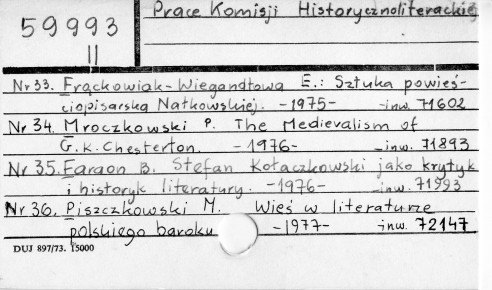 59993
II
Prace Komisji Historycznoliterackiej
Nr 33. Frąckowiak-Wiegandtowa E.: Sztuka powieś-
ciopisarska Nałkowskiej. -1975- -inw. 71602
Nr 34. Mroczkowski P. The Medievalism of
G.K. Chesterton. -1976- -inw. 71893
Nr 35. Faraon B. Stefan Kołaczkowski jako krytyk
i historyk literatury. -1976- -inw. 71993
Nr 36. Piszczkowski M. Wieś w literaturze
polskiego baroku -1977- -inw. 72147
DUJ 897/73. 15000